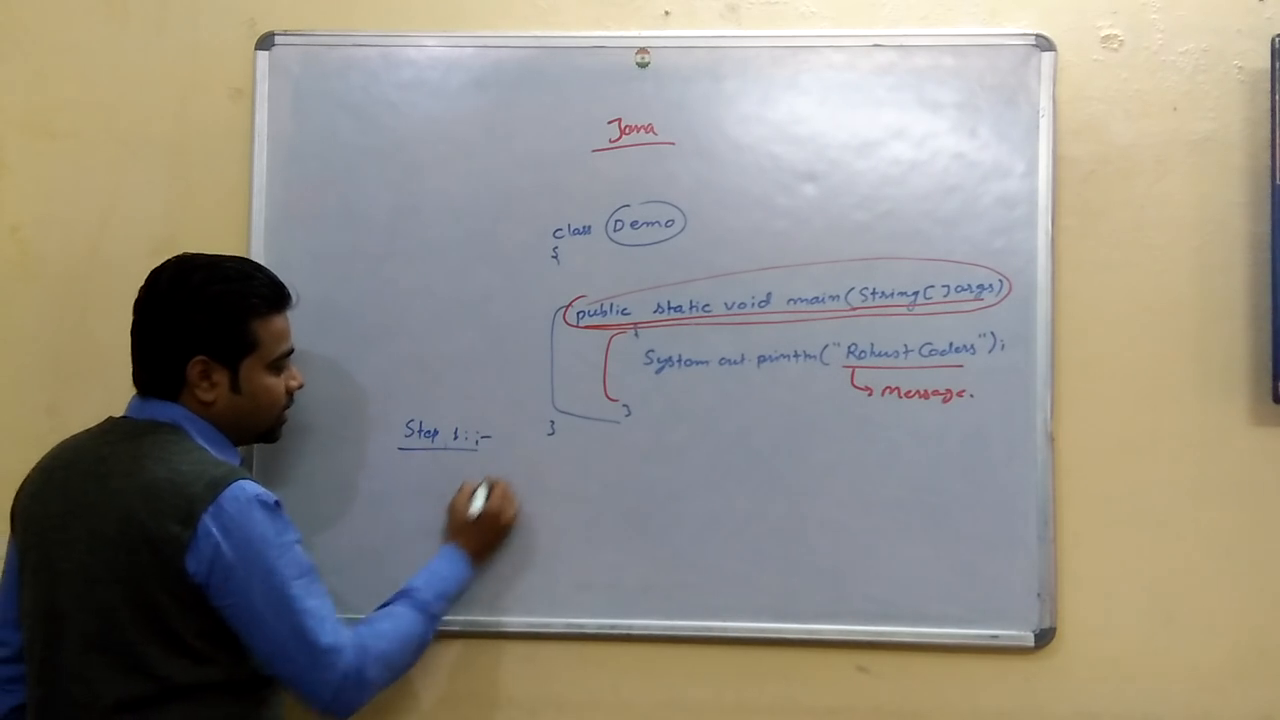 Java
class Demo
{
public static void main(String[] args)
{
System.out.println("Robust Coders");
Message.
}
}
Step 1:;-